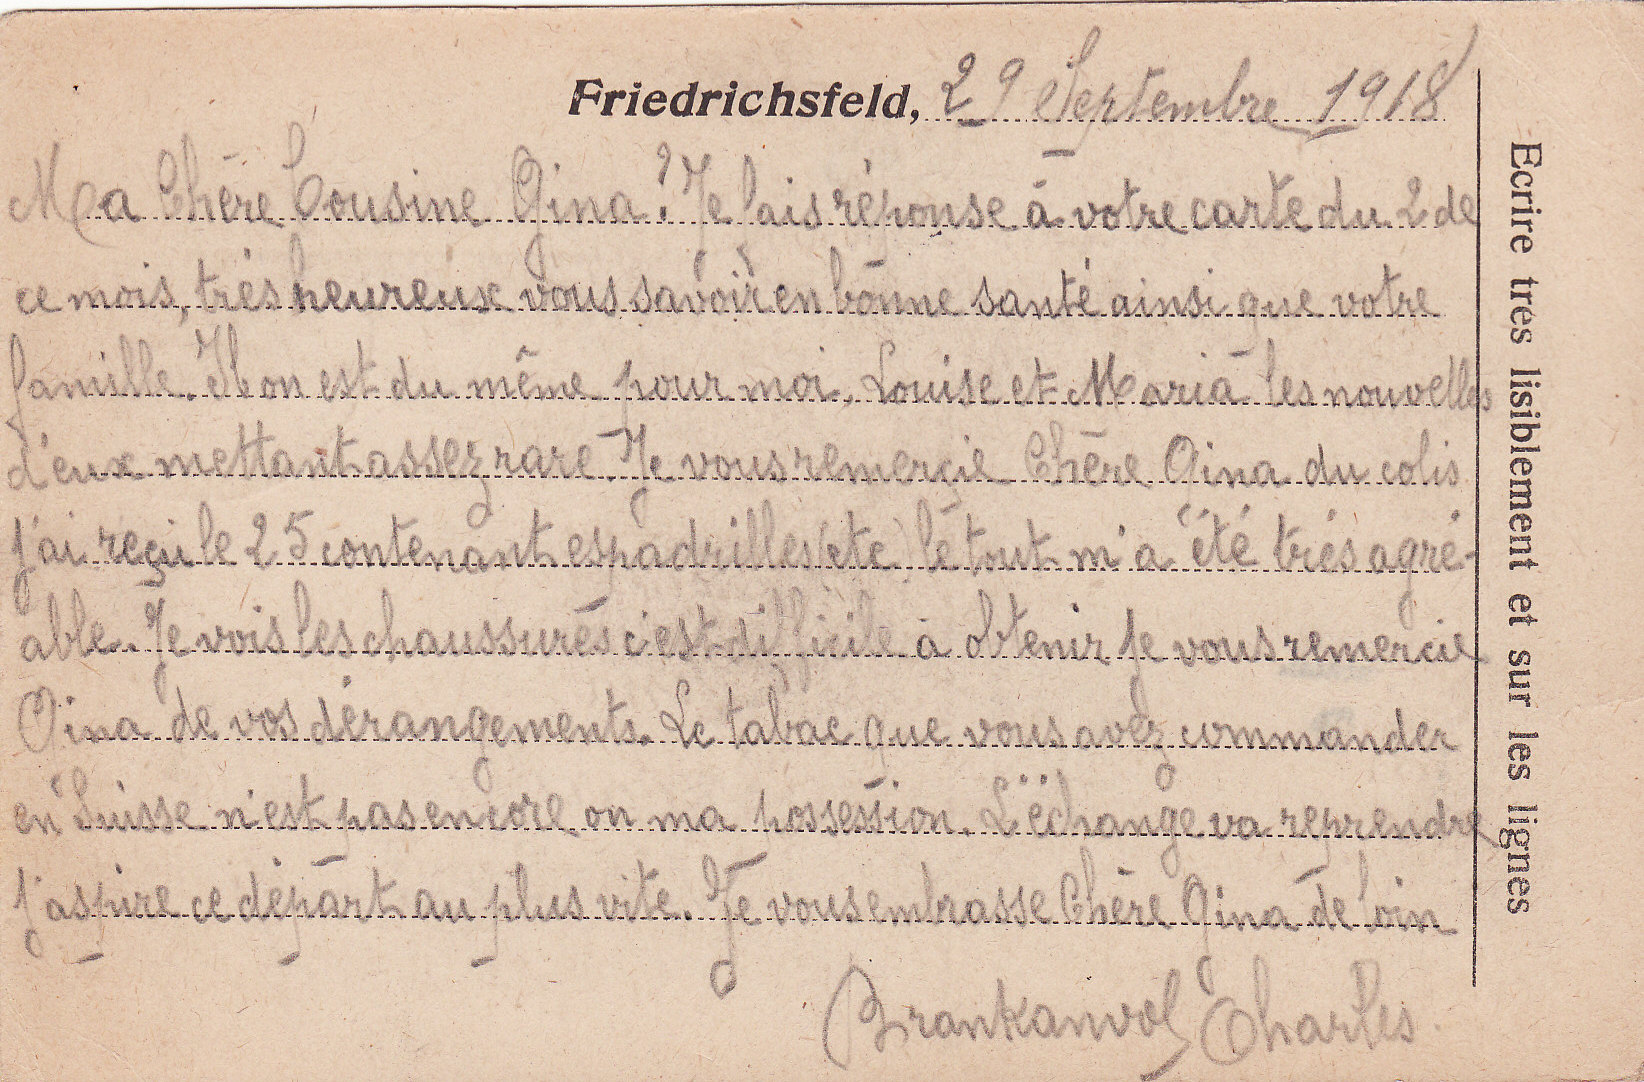 Friedrichsfeld, 29 Septembre 1918
Ma Chère Cousine Gina! Je fais réponse à votre carte du 2 de
ce mois, très heureux vous savoir en bonne santé ainsi que votre
famille. Il on est du même pour moi, Louise et Maria les nouvelles
d'eux mettant assez rare. Je vous remerçie Chère Gina du colis
j'ai reçu le 25 contenant espadrilles (etc) le tout m'a été très agré-
able. Je vois les chaussures c'est difficile à obtenir je vous remercie
Gina de vos dérangements. Le tabac que vous avez commander
en Suisse n'est pas encore on ma possession. L'échange va reprendre
j'aspire ce départ au plus vite. Je vous embrasse Chère Gina de loin
Charles
Ecrire très lisiblement et sur les lignes